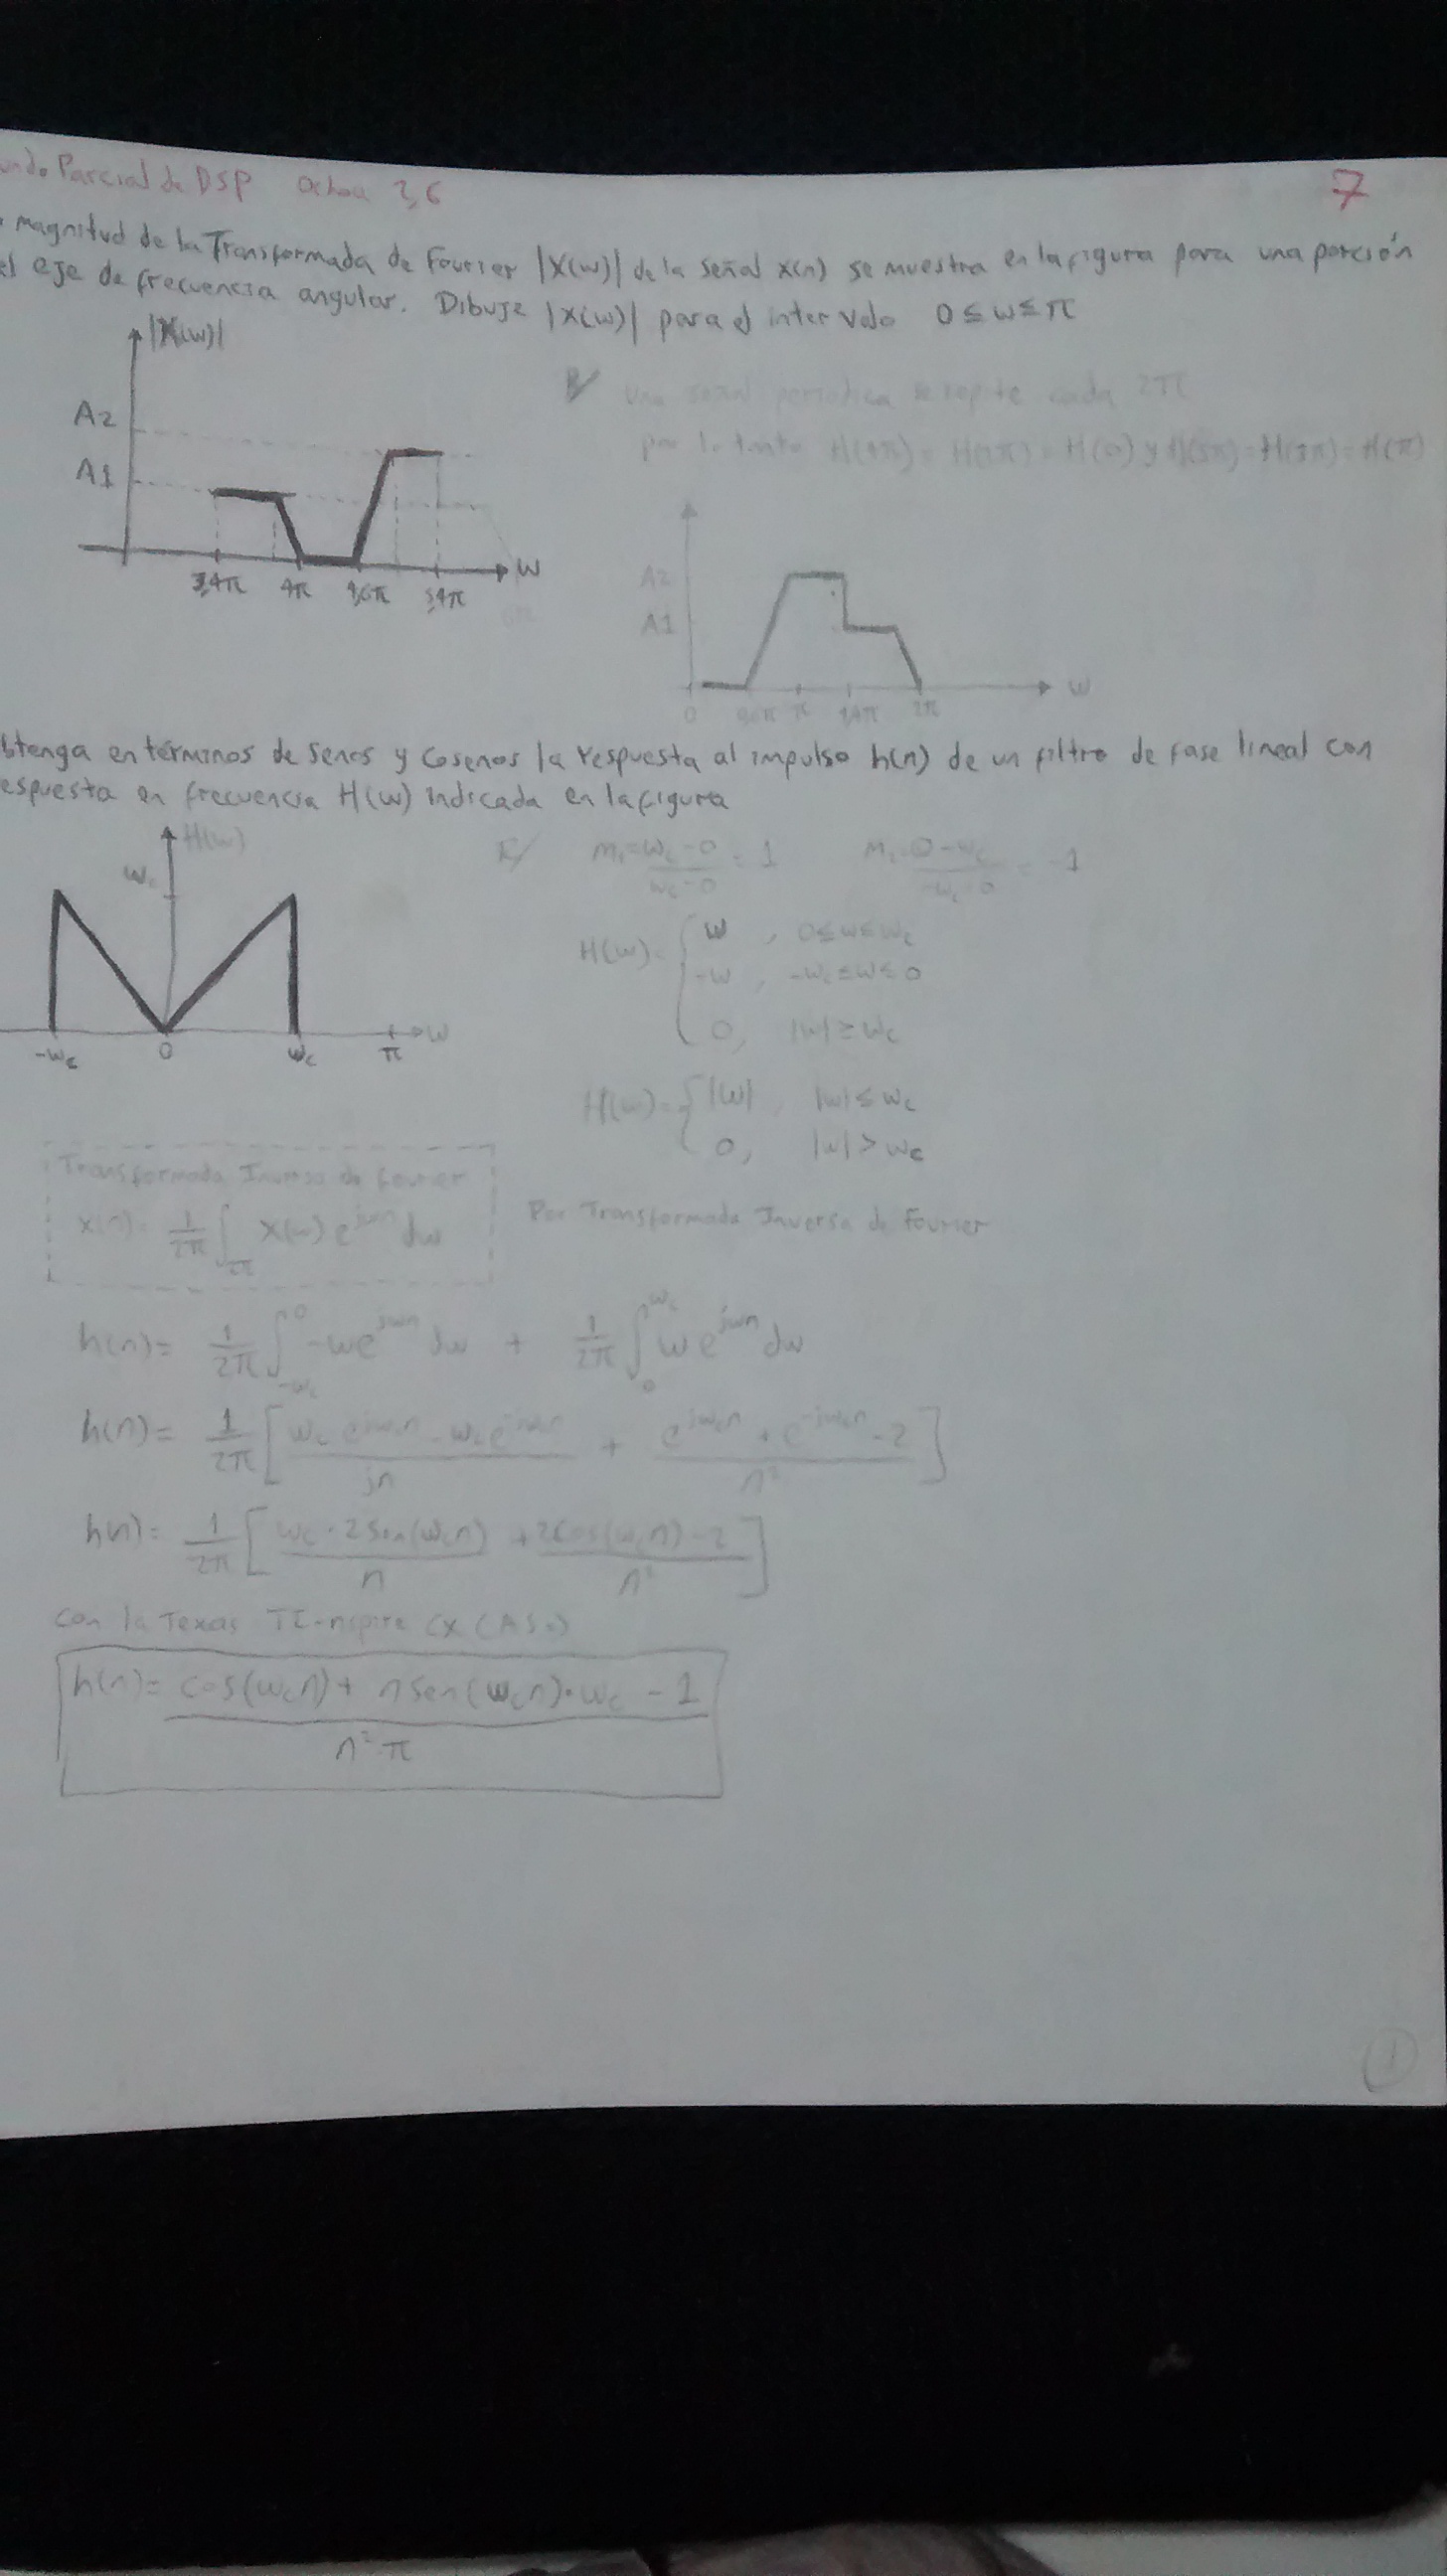 undo Parcial de DSP Ochoa 2,6
7
magnitud de la Transformada de Fourier |X(w)| de la señal x(n) se muestra en la figura para una porción
el eje de frecuencia angular. Dibuje |X(w)| para el intervalo 0 ≤ w ≤ π
|X(w)|
A2
A1
3,4π 4π 4,6π 5,4π w
R/ Una señal periodica se repite cada 2π
por lo tanto H(4π) = H(2π) = H(0) y H(5π) = H(3π) = H(π)
A2
A1
0 0,6π π 1,4π 2π w
btenga en términos de Senos y Cosenos la respuesta al impulso h(n) de un filtro de fase lineal con
espuesta en frecuencia H(w) indicada en la figura
H(w)
wc
-wc 0 wc π w
R/ m₁ = (wc - 0)/(wc - 0) = 1 m₂ = (0 - wc)/(-wc - 0) = -1
H(w) = { w , 0 ≤ w ≤ wc
-w , -wc ≤ w ≤ 0
0, |w| ≥ wc
H(w) = { |w| , |w| ≤ wc
0, |w| > wc
Transformada Inversa de Fourier
x(n) = 1/2π ∫2π x(w) e^jwn dw
Por Transformada Inversa de Fourier
h(n) = 1/2π ∫-wc^0 -w e^jwn dw + 1/2π ∫0^wc w e^jwn dw
h(n) = 1/2π [ (wc e^jwcn - wc e^-jwcn)/jn + (e^jwcn + e^-jwcn - 2)/n² ]
h(n) = 1/2π [ (wc · 2 Sen(wc n))/n + (2Cos(wc n) - 2)/n² ]
Con la Texas TI-nspire CX CAS
h(n) = (cos(wc n) + n sen(wc n)·wc - 1)/(n²·π)
1